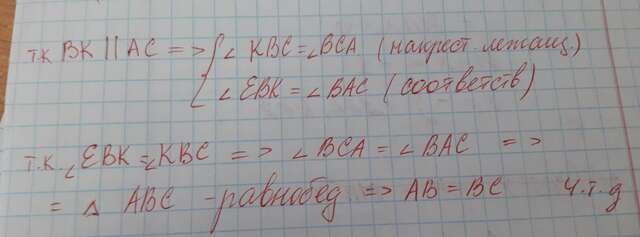 т.к BK || AC => { ∠ KBC = ∠BCA (накрест. лежащ.)
∠ EBK = ∠ BAC (соответств)
т.к. ∠ EBK = ∠ KBC => ∠ BCA = ∠ BAC =>
= △ ABC - равнобед => AB = BC ч.т.д